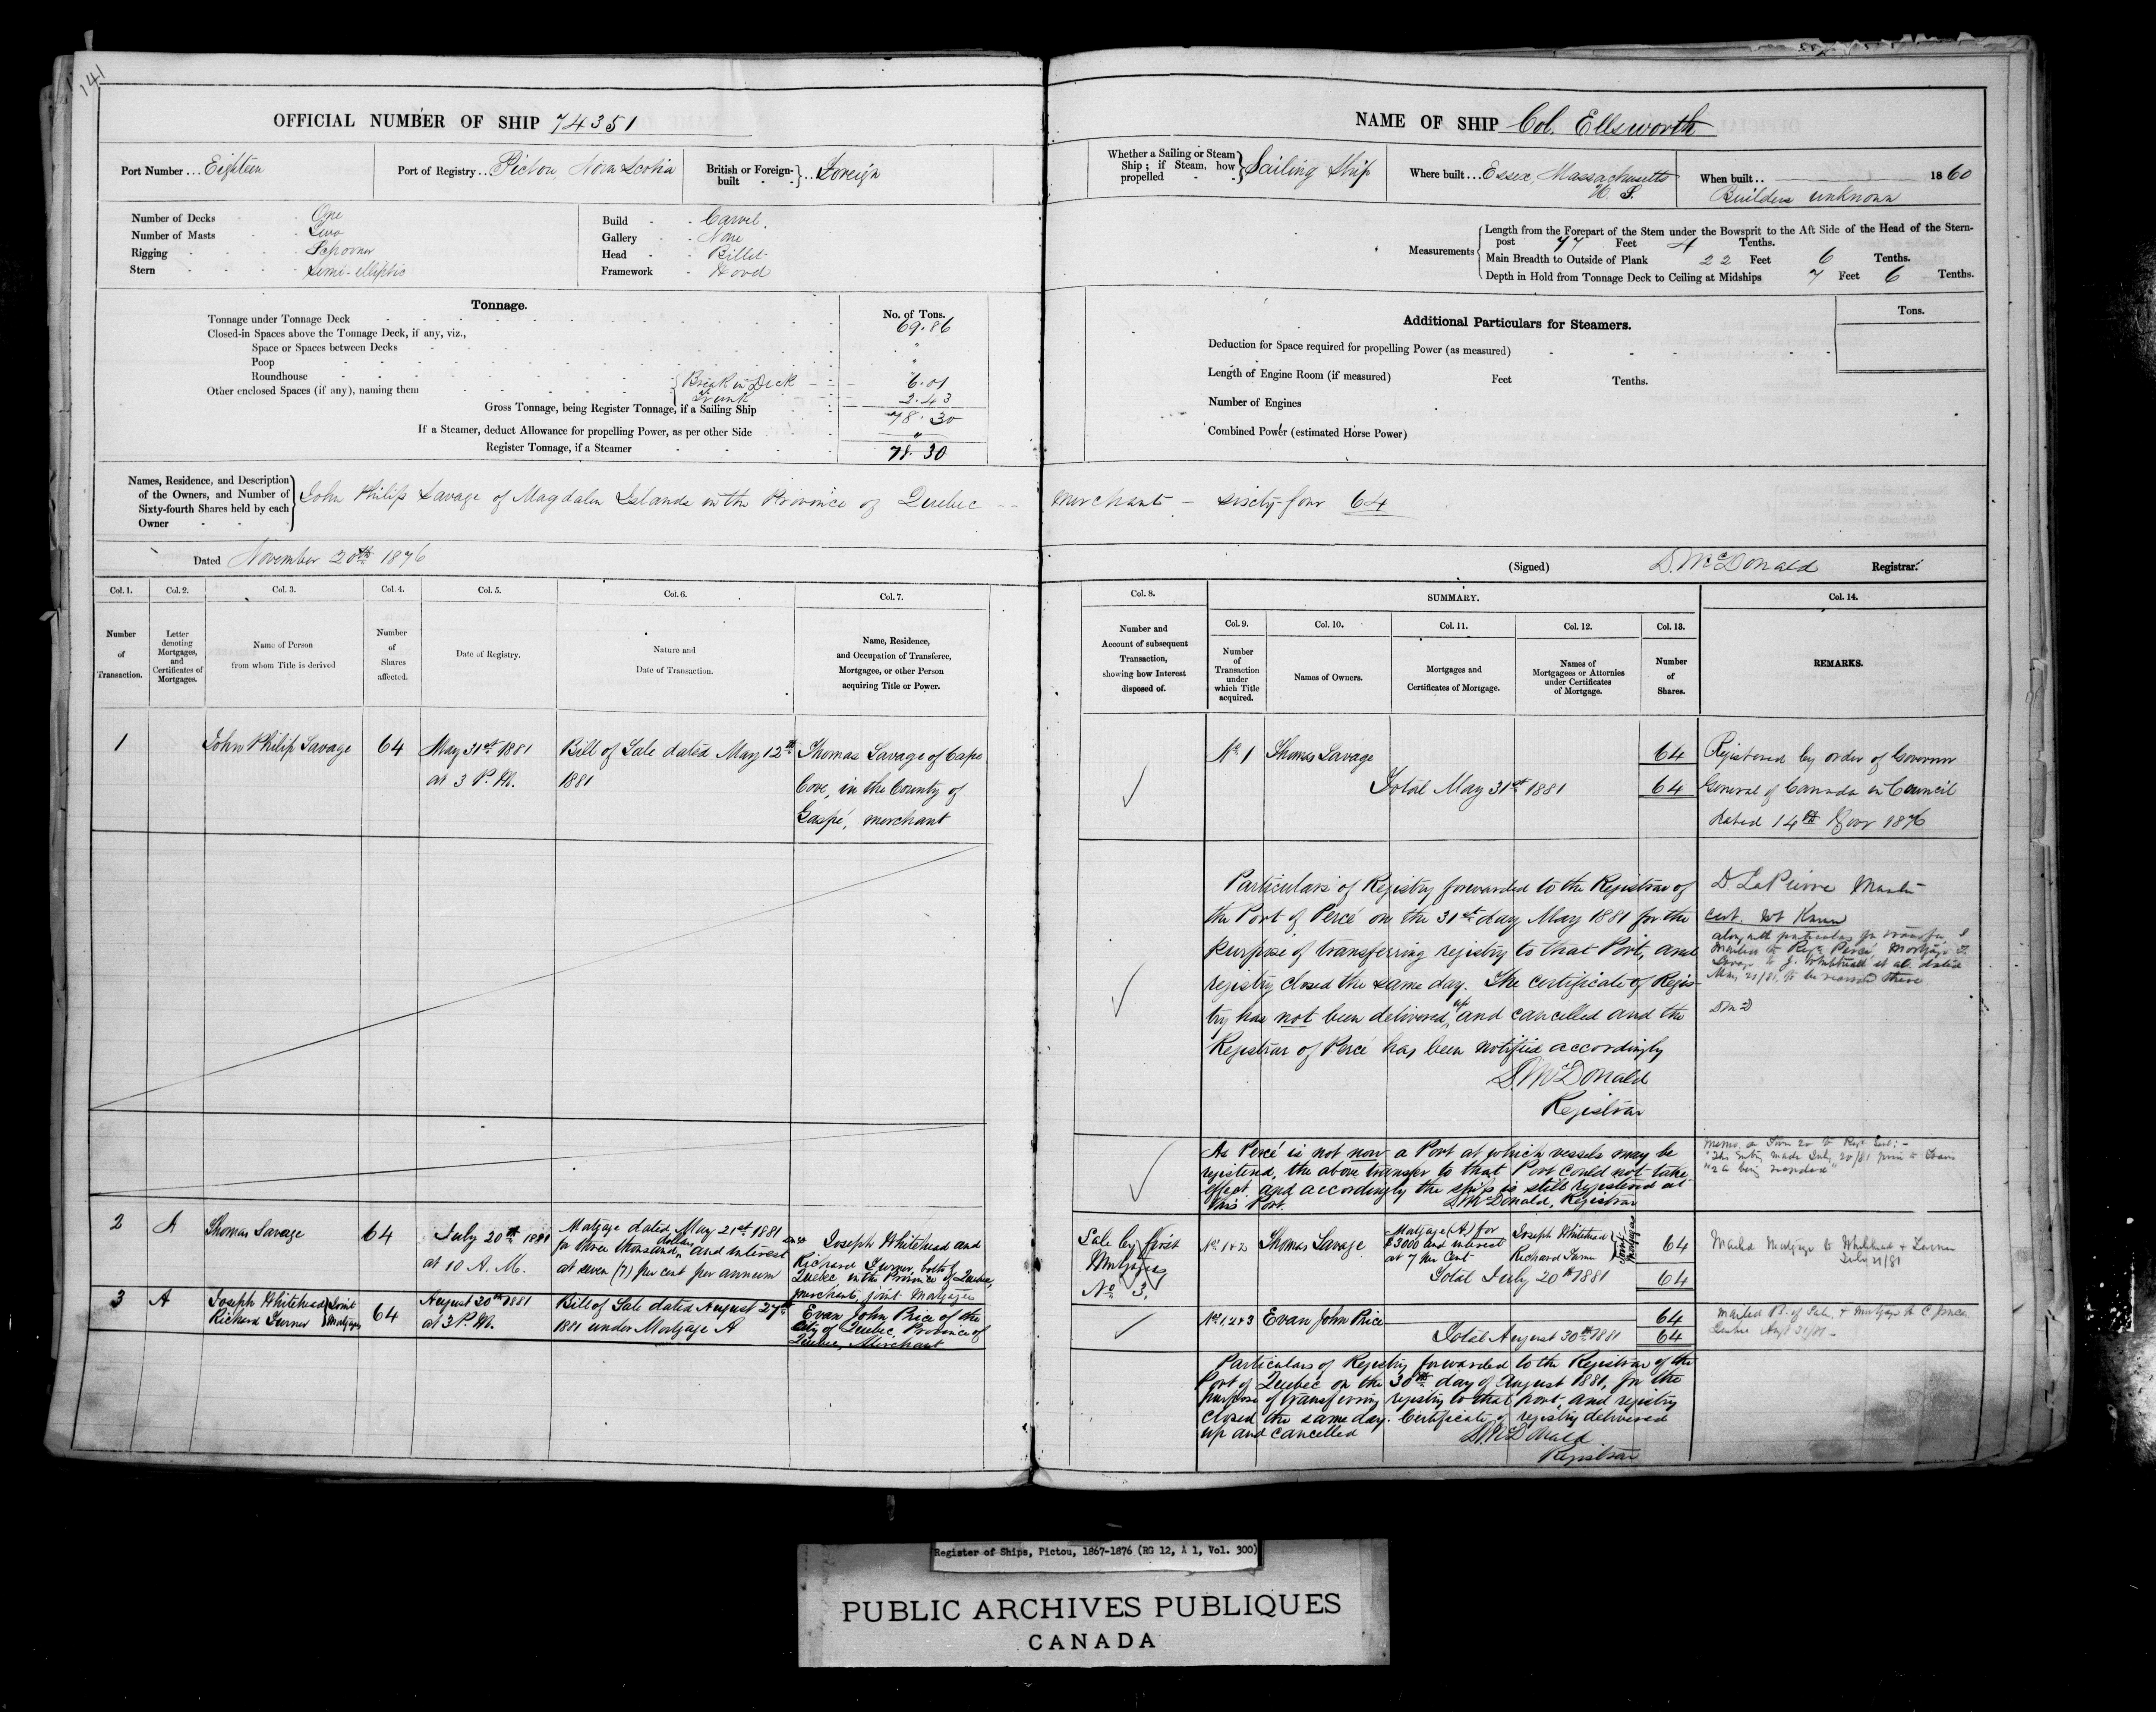 141
OFFICIAL NUMBER OF SHIP 74351
Port Number ... Eighteen
Port of Registry .. Pictou, Nova Scotia
British or Foreign-built } .. Foreign
Number of Decks - One
Number of Masts - Two
Rigging - Schooner
Stern - Semi-elliptic
Build - Carvel.
Gallery - None
Head - Billet
Framework - Wood
Tonnage.
No. of Tons.
Tonnage under Tonnage Deck 69.86
Closed-in Spaces above the Tonnage Deck, if any, viz.,
Space or Spaces between Decks "
Poop "
Roundhouse
Other enclosed Spaces (if any), naming them { Break in Deck 6.01
Trunk 2.43
Gross Tonnage, being Register Tonnage, if a Sailing Ship 78.30
If a Steamer, deduct Allowance for propelling Power, as per other Side "
Register Tonnage, if a Steamer 78.30
NAME OF SHIP Col. Ellsworth
Whether a Sailing or Steam Ship; if Steam, how propelled } Sailing Ship
Where built ... Essex, Massachusetts
U. S.
When built .. 1860
Builders unknown
Measurements
Length from the Forepart of the Stem under the Bowsprit to the Aft Side of the Head of the Stern-
post 77 Feet 4 Tenths.
Main Breadth to Outside of Plank 22 Feet 6 Tenths.
Depth in Hold from Tonnage Deck to Ceiling at Midships 7 Feet 6 Tenths.
Additional Particulars for Steamers.
Tons.
Deduction for Space required for propelling Power (as measured)
Length of Engine Room (if measured) Feet Tenths.
Number of Engines
Combined Power (estimated Horse Power)
Names, Residence, and Description
of the Owners, and Number of
Sixty-fourth Shares held by each
Owner
John Philip Savage of Magdalen Islands in the Province of Quebec -- merchant - sixty-four 64
Dated November 20th 1876
(Signed) D. McDonald Registrar.
Col. 1. Col. 2. Col. 3. Col. 4. Col. 5. Col. 6. Col. 7.
Number of Transaction.
Letter denoting Mortgages, and Certificates of Mortgages.
Name of Person from whom Title is derived
Number of Shares affected.
Date of Registry.
Nature and Date of Transaction.
Name, Residence, and Occupation of Transferee, Mortgagee, or other Person acquiring Title or Power.
Col. 8. SUMMARY. Col. 14.
Number and Account of subsequent Transaction, showing how Interest disposed of.
Col. 9. Col. 10. Col. 11. Col. 12. Col. 13.
Number of Transaction under which Title acquired.
Names of Owners.
Mortgages and Certificates of Mortgage.
Names of Mortgagees or Attornies under Certificates of Mortgage.
Number of Shares.
REMARKS.
1 John Philip Savage 64
May 31st 1881
at 3 P.M.
Bill of Sale dated May 12th
1881
Thomas Savage of Cape
Cove, in the County of
Gaspé, merchant
No. 1 Thomas Savage 64
Total May 31st 1881 64
Registered by order of Governor
General of Canada in Council
dated 14th Novr 1876
Particulars of Registry forwarded to the Registrar of
the Port of Percé on the 31st day May 1881 for the
purpose of transferring registry to that Port, and
registry closed the same day. The certificate of Regis-
try has not been delivered up and cancelled and the
Registrar of Percé has been notified accordingly
D. McDonald
Registrar
D. LaPierre Master
along with particulars for transfer
DMcD
As Percé is not now a Port at which vessels may be
registered, the above transfer to that Port could not take
effect, and accordingly the ship is still registered at
this Port. D. McDonald, Registrar
2 A Thomas Savage 64
July 20th 1881
at 10 A.M.
Mortgage dated May 21st 1881
for three thousand dollars and interest
at seven (7) per cent per annum
Joseph Whitehead and
Richard Turner, both of
Quebec in the Province of Quebec,
merchants, joint Mortgagees
Sale by first
Mortgagees
No. 3.
No. 1 & 2 Thomas Savage
Mortgage (A) for
$3000 and interest
at 7 per Cent
Joseph Whitehead
Richard Turner
Joint Mortgagees
64
Total July 20th 1881 64
Mailed Mortgage to Whitehead & Turner
July 21/81
3 A Joseph Whitehead
Richard Turner } Joint Mortgagees 64
August 30th 1881
at 3 P.M.
Bill of Sale dated August 27th
1881 under Mortgage A
Evan John Price of the
City of Quebec, Province of
Quebec, Merchant
No. 1, 2 & 3 Evan John Price 64
Total August 30th 1881 64
Particulars of Registry forwarded to the Registrar of the
Port of Quebec on the 30th day of August 1881, for the
purpose of transferring registry to that port, and registry
closed the same day. Certificate of registry delivered
up and cancelled
D. McDonald
Registrar
Register of Ships, Pictou, 1867-1876 (RG 12, A 1, Vol. 300)
PUBLIC ARCHIVES PUBLIQUES
CANADA